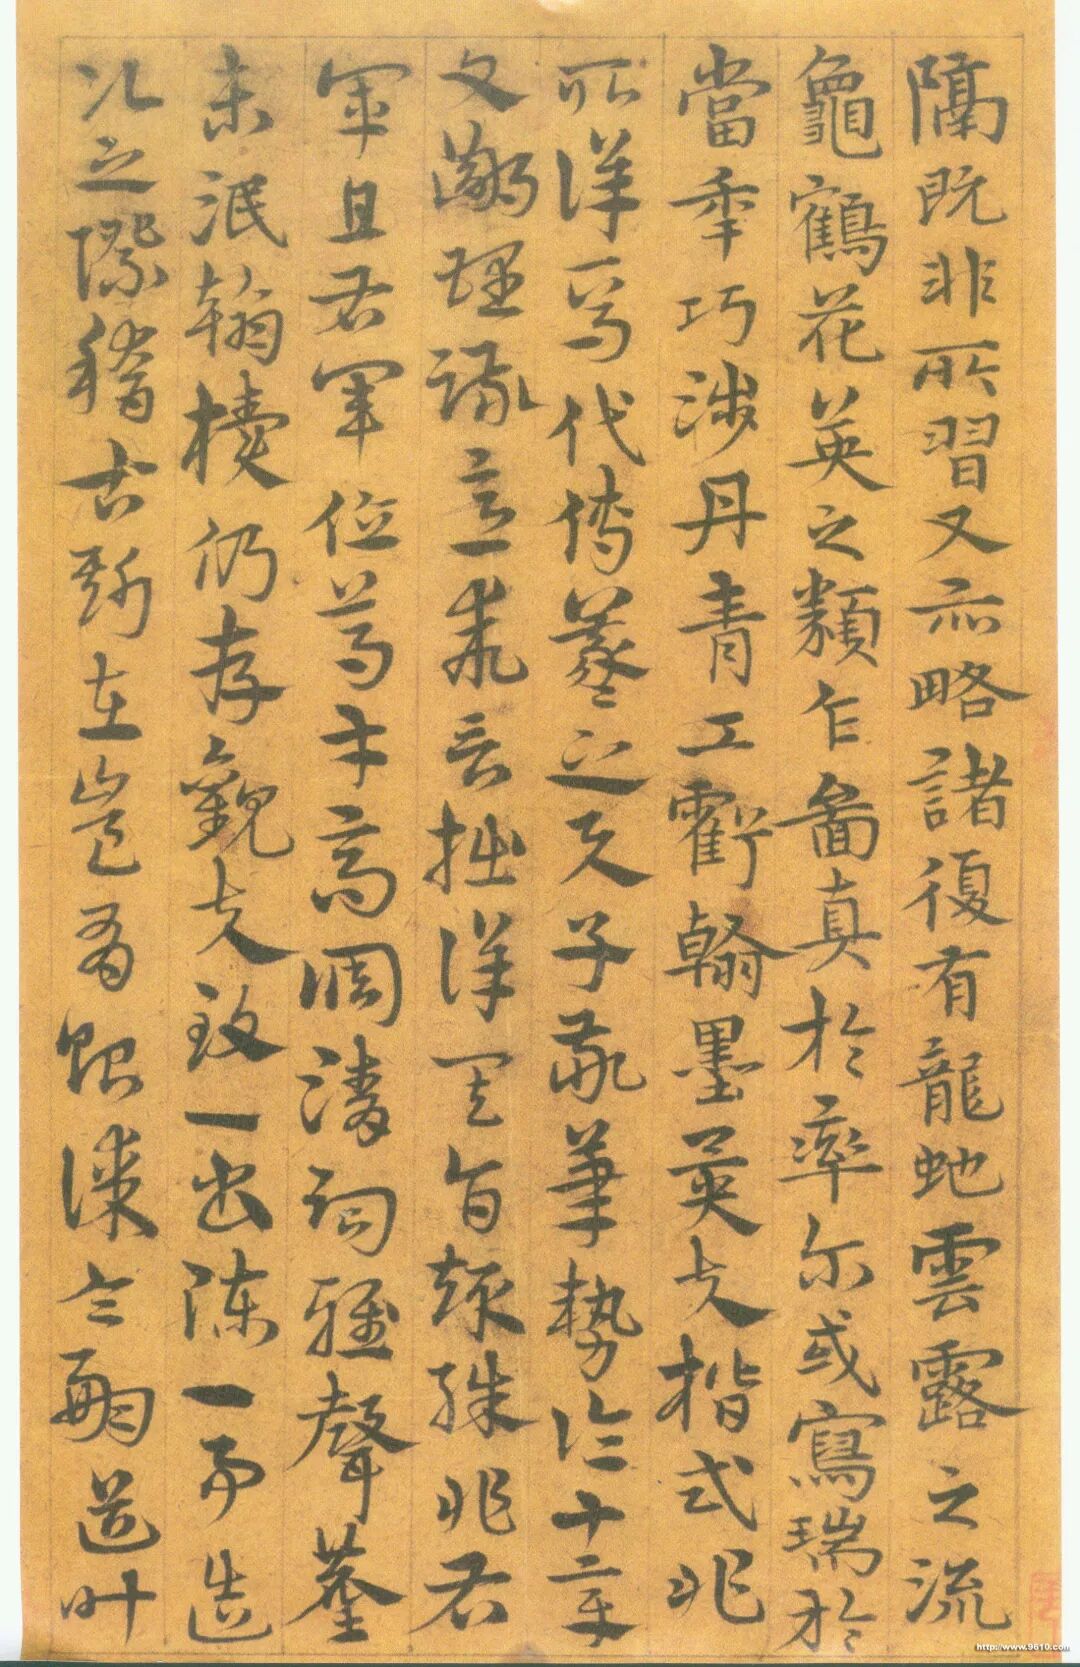 隔既非所習又亦略諸復有龍虵雲露之流
龜鶴花英之類乍啚真於率尔或寫瑞於
當年巧渉丹青工虧翰墨異夫楷式非
所詳焉代傳羲之与子敬筆勢論十章
文鄙理疎意乖言拙詳其旨趣殊非右
軍且右軍位重才高調清詞雅聲塵
未泯翰櫝仍存觀夫致一書陳一事造
次之際稽古斯在豈有貽謀令嗣道叶
http://www.9610.com